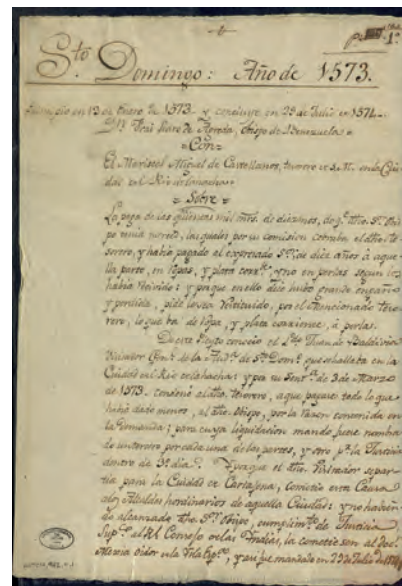 Sto. Domingo: Año de 1573.
en 13 de Enero de 1573 y concluye en 29 de Julio de 1574
Obispo de Venezuela
Con
El Mariscal Miguel de Castellanos, tesorero de S.M. en la Ciu
dad del Rio de la hacha
Sobre
La paga de las quinientas mil mrs. de diezmos, de q.e dho. S.or Obis
po tenia merced, las quales por su comision cobraba el dho. te
sorero, y habia pagado al expresado S.or de diez años á aque
lla parte, en ropas, y plata corr.te y no en perlas segun los
habia recivido: y porque en ello dice hubo grande engaño
y perdida, pide le sea restituido, por el mencionado teso
rero, lo que ba de ropa, y plata corriente, á perlas.
De este Pleyto conoció el L.do Juan de
Visitador Gen.l de la Aud.a de S.to Dom.o que se hallaba en la
Ciudad del Rio de la hacha: y por su Sent.a de 3 de Marzo
de 1573. condenó al dho. tesorero, a que pague todo lo que
habia dado menos, al dho. Obispo, por la razon contenida en
la demanda; para cuya liquidacion mandó fuese nombra
do un tercero por cada una de las partes, y otro p.r la Justicia
dentro de 3.o dia. Y porque el dho. Visitador se par
tia para la Ciudad de Cartagena, cometió esta Causa
a los Alcaldes hordinarios de aquella Ciudad: y no habien
do alcanzado dho. S.or Obispo, cumplim.to de Justicia
Sup.có al R.l Consejo de las Indias, la cometiese al
oidor de la Isla Esp.la, y asi fue mandado en 29 de Julio de 1574